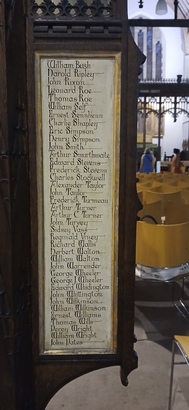 William Bash
Harold Ripley
John Rixon
Leonard Roe
Thomas Roe
William Self
Ernest Sennhenn
Charlie Shapley
Eric Simpson
Henry Simpson
John Smith
Arthur Smurthwaite
Edward Stevens
Frederick Stevens
Charles Stockwell
Alexander Taylor
John Taylor
Frederick Turmeau
Arthur Turner
Arthur C Turner
John Turvey
Sidney
Reginald Viney
Richard Wallis
Herbert Walton
William Walton
John Warrender
George Wheeler
George J Wheeler
Edward Whitington
John Whittington
John Wilkinson
William Wilkinson
Ernest Williams
Thomas Wills
Percy Wright
William Wright
John Yates